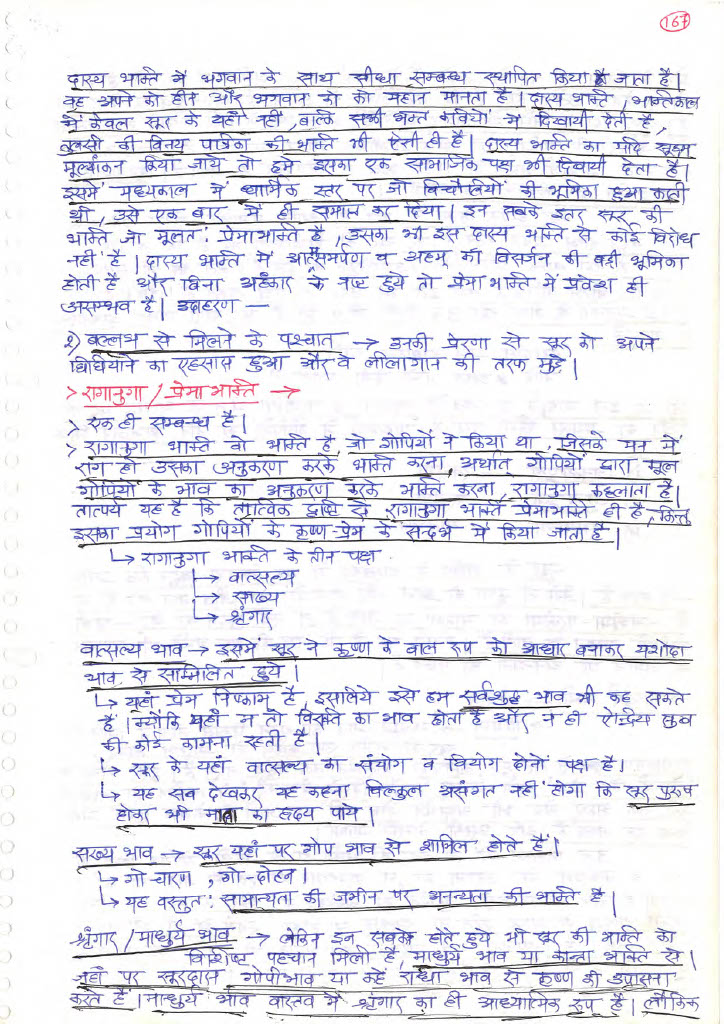 167
दास्य भक्ति में भगवान के साथ सीधा सम्बन्ध स्थापित किया जाता है।
वह अपने को हीन और भगवान को को महान मानता है। दास्य भक्ति, भक्तिकाल
में केवल सूर के यहाँ नहीं, बल्कि सभी भक्त कवियों में दिखायी देती है,
तुलसी की विनय पत्रिका की भक्ति भी ऐसी ही है। दास्य भक्ति का यदि सूक्ष्म
मूल्यांकन किया जाये तो हमे इसका एक सामाजिक पक्ष भी दिखायी देता है।
इसमें मध्यकाल में धार्मिक स्तर पर जो बिचौलियों की भूमिका हुआ करती
थी, उसे एक बार में ही समाप्त कर दिया। इन सबके इतर सूर की
भक्ति जो मूलत: प्रेमाभक्ति है, उसका भी इस दास्य भक्ति से कोई विरोध
नहीं है। दास्य भक्ति में आत्मसमर्पण व अहम् की विसर्जन की बड़ी भूमिका
होती है और बिना अहंकार के नष्ट हुये तो प्रेमाभक्ति में प्रवेश ही
असम्भव है। उदाहरण —
2) बल्लभ से मिलने के पश्चात → उनकी प्रेरणा से सूर को अपने
घिघियाने का एहसास हुआ और वे लीलागान की तरफ मुड़े।
> रागानुगा / प्रेमाभक्ति →
> एक ही सम्बन्ध है।
> रागानुगा भक्ति वो भक्ति है, जो गोपियों ने किया था, जिसके मन में
राग हो उसका अनुकरण करके भक्ति करना, अर्थात गोपियों द्वारा मूल
गोपियों के भाव का अनुकरण करके भक्ति करना, रागानुगा कहलाता है।
तात्पर्य यह है कि तात्विक दृष्टि से रागानुगा भक्ति प्रेमाभक्ति ही है, किन्तु
इसका प्रयोग गोपियों के कृष्ण-प्रेम के सन्दर्भ में किया जाता है।
↳ रागानुगा भक्ति के तीन पक्ष
→ वात्सल्य
→ सख्य
→ श्रृंगार
वात्सल्य भाव → इसमें सूर ने कृष्ण के बाल रूप को आधार बनाकर यशोदा
भाव से सम्मिलित हुये।
↳ यहाँ प्रेम निष्काम है, इसलिये इसे हम सर्वशुद्ध भाव भी कह सकते
हैं। क्योंकि यहाँ न तो विरक्ति का भाव होता है और न ही ऐन्द्रिय सुख
की कोई कामना रहती है।
↳ सूर के यहाँ वात्सल्य का संयोग व वियोग दोनों पक्ष है।
↳ यह सब देखकर यह कहना बिल्कुल असंगत नहीं होगा कि सूर पुरुष
होकर भी माता का हृदय पाये।
सख्य भाव → सूर यहाँ पर गोप भाव से शामिल होते हैं।
↳ गो-चारण, गो-दोहन।
↳ यह वस्तुत: सामान्यता की जमीन पर अनन्यता की भक्ति है।
श्रृंगार / माधुर्य भाव → लेकिन इन सबके होते हुये भी सूर की भक्ति को
विशिष्ट पहचान मिली है, माधुर्य भाव या कान्ता भक्ति से।
जहाँ पर सूरदास गोपीभाव या कहें राधा भाव से कृष्ण की उपासना
करते हैं। माधुर्य भाव वास्तव में श्रृंगार का ही आध्यात्मिक रूप है। लौकिक